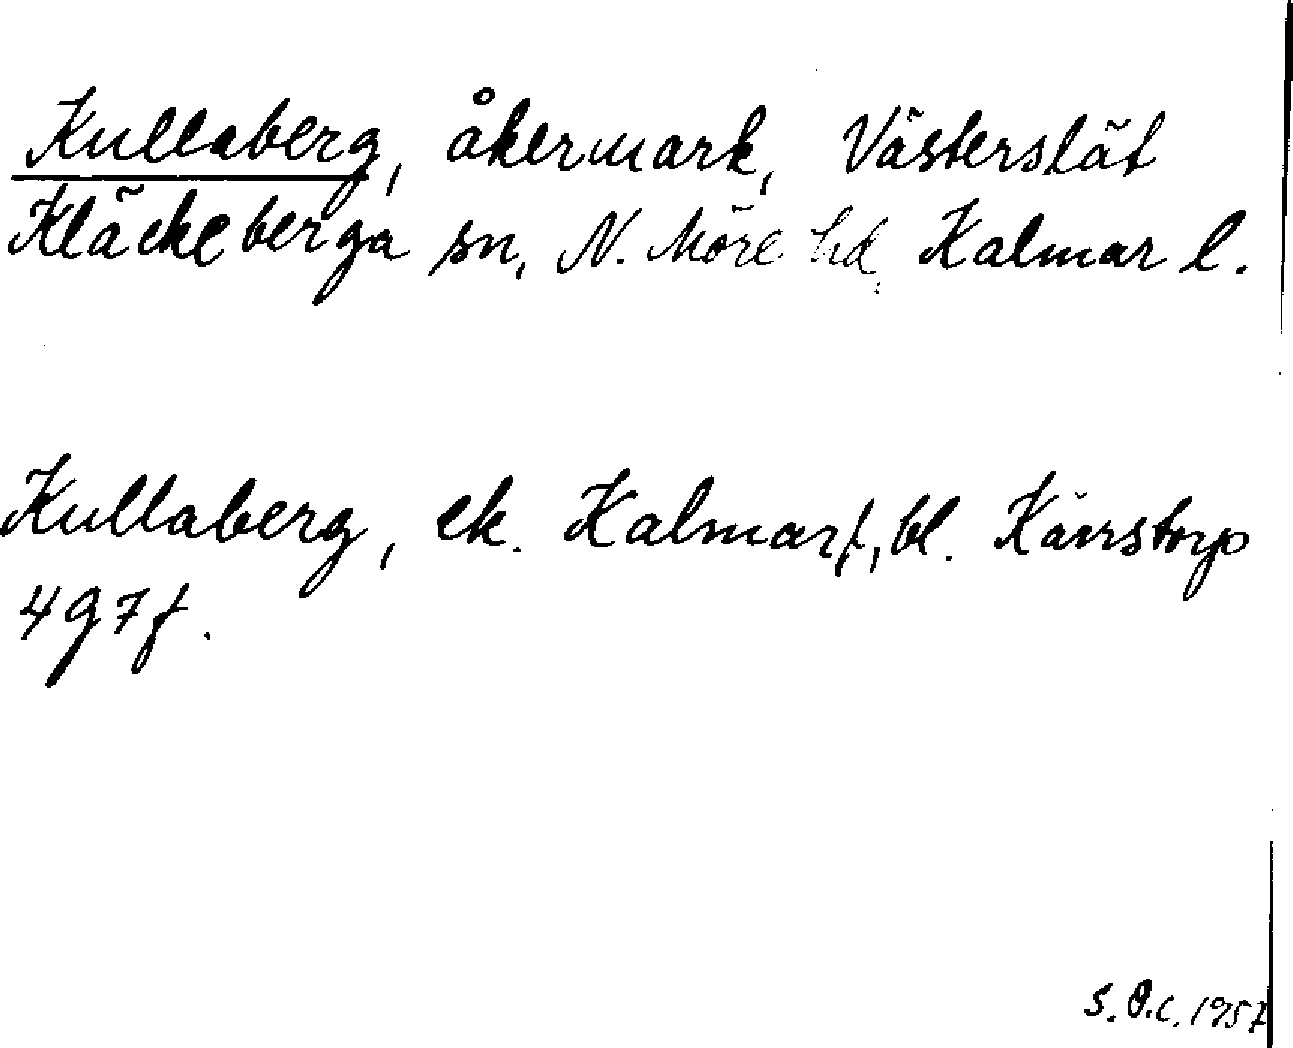 Kullaberg, åkermark, Västerslät
Kläckeberga sn, N. Möre hd, Kalmar l.
Kullaberg, ek. Kalmar f, bl. Kärrstorp
4 g 7 f.
S. O.C. 1957